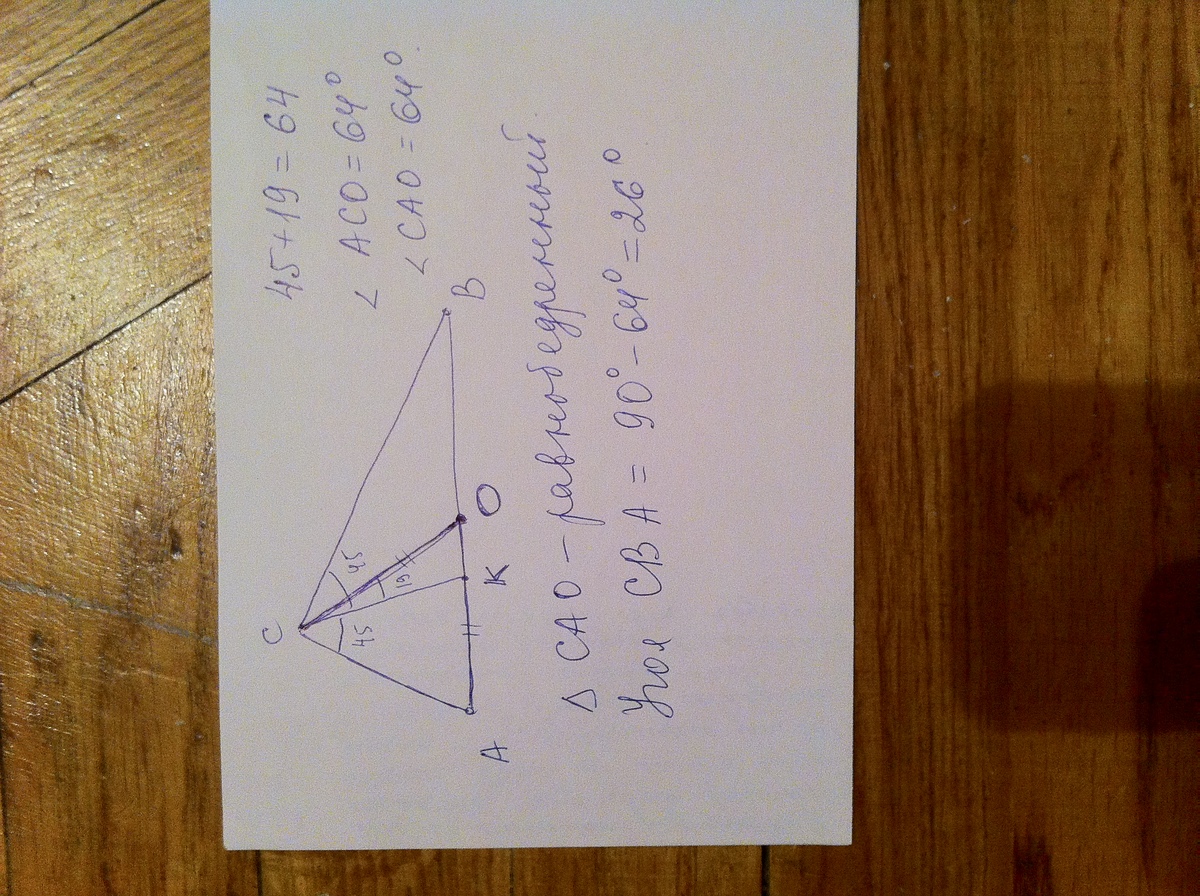 45+19=64
∠ ACO=64°
∠ CAO=64°.
C
45
45
19
A
K
O
B
Δ CAO - равнобедренный.
Угол CBA = 90° - 64° = 26°